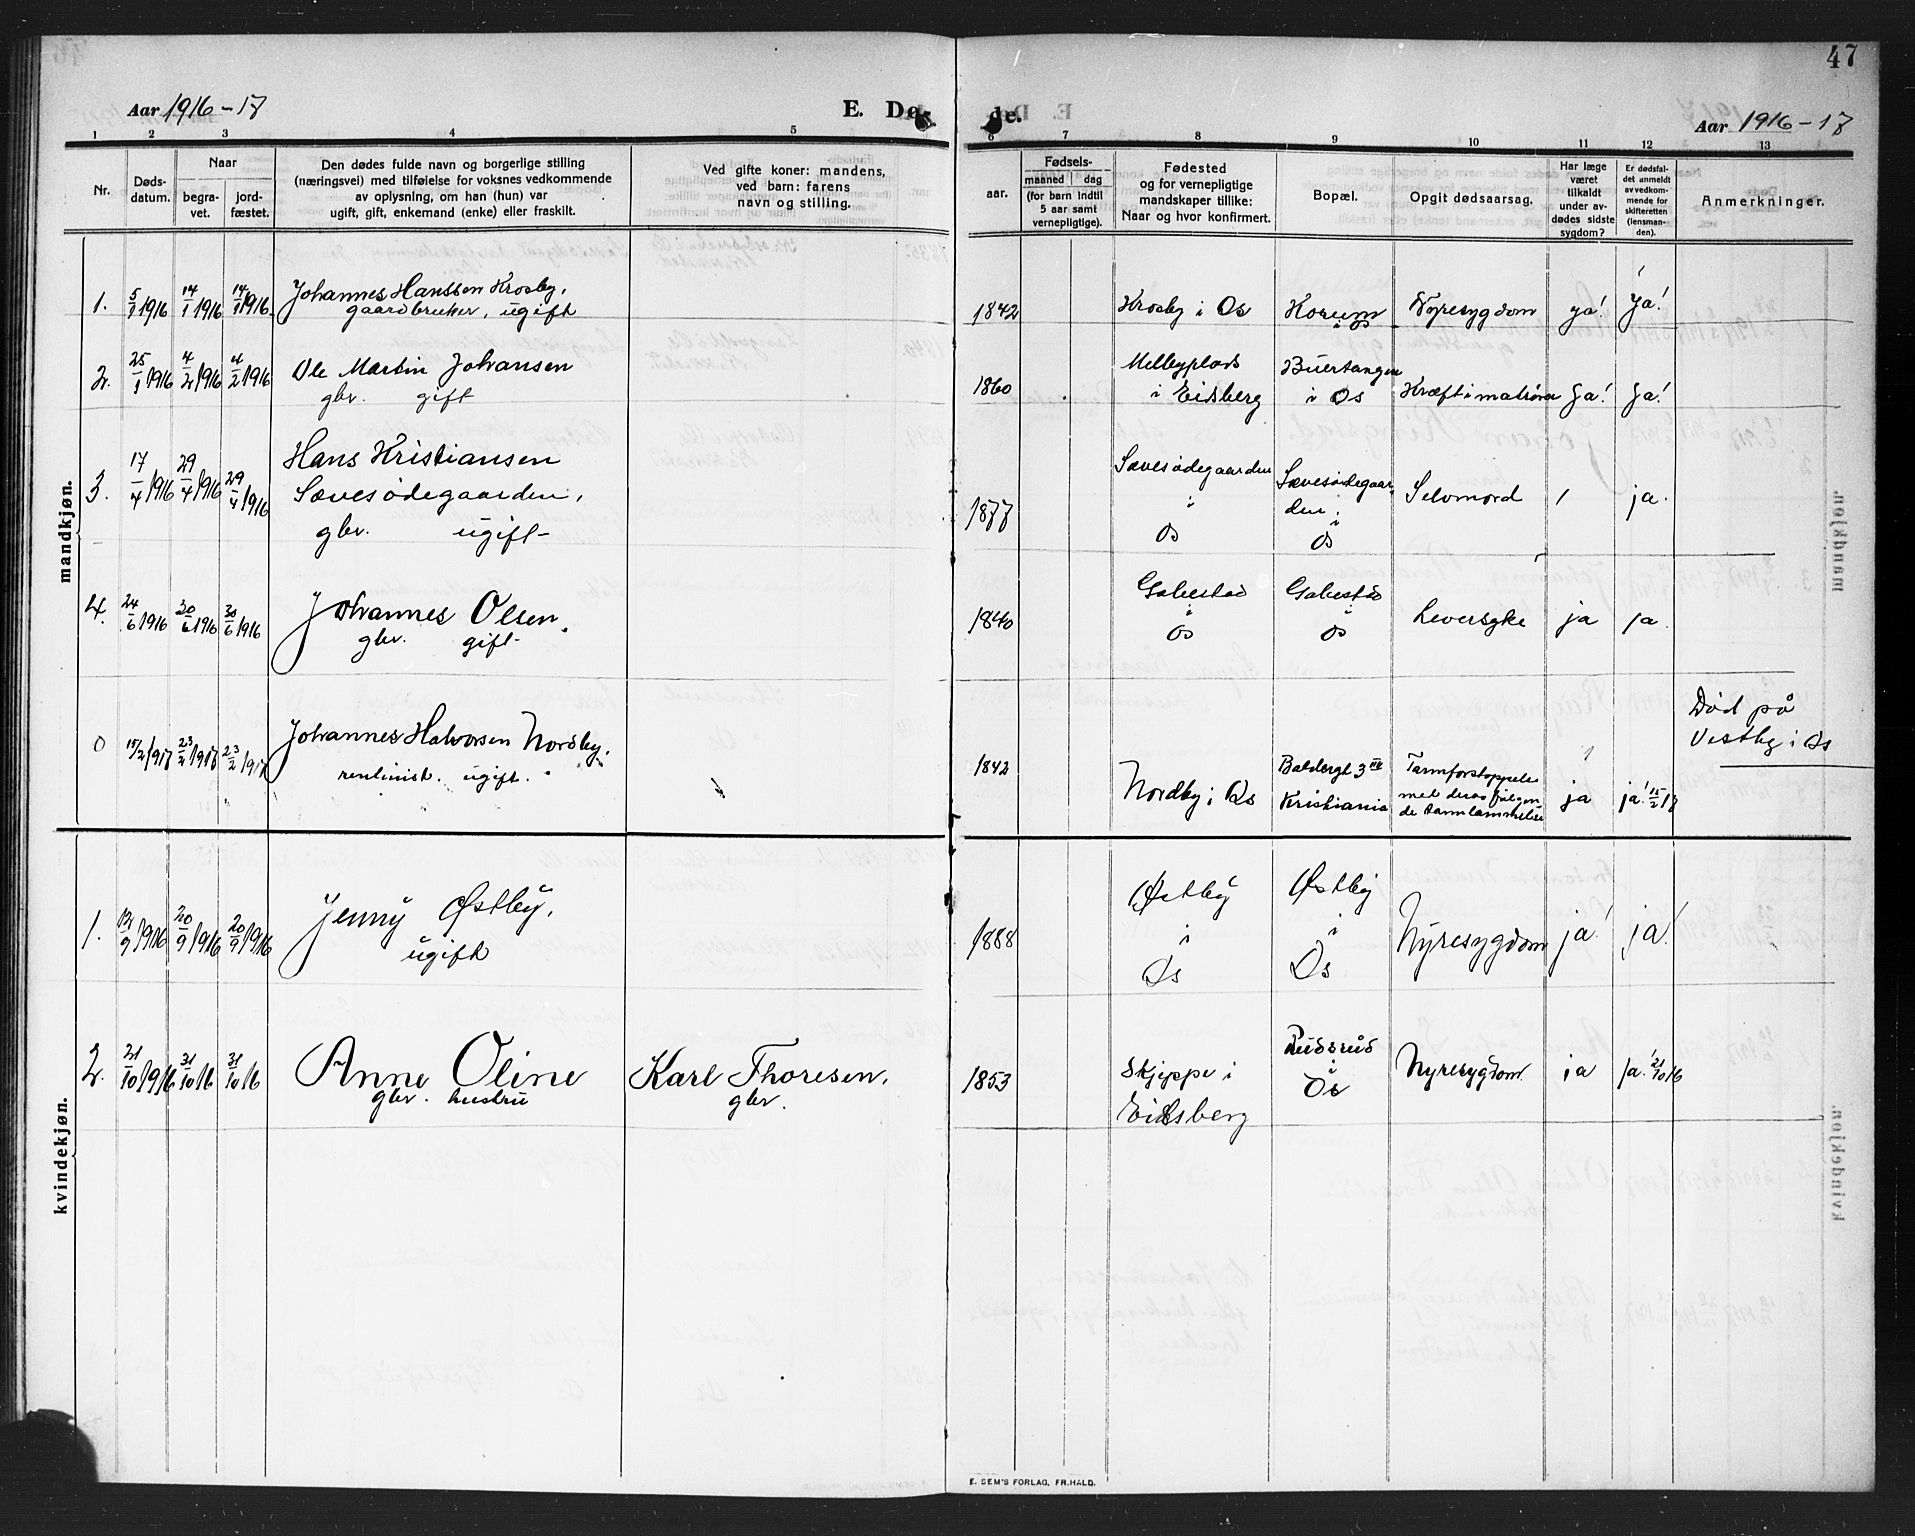 47
Aar 1916-17
E. Dø-
de.
Aar 1916-17
1 2 3 4 5 6 7 8 9 10 11 12 13
Nr.
Døds-
datum.
Naar
begra-
vet.
jord-
fæstet.
Den dødes fulde navn og borgerlige stilling
(næringsvei) med tilføielse for voksnes vedkommende
av oplysning, om han (hun) var
ugift, gift, enkemand (enke) eller fraskilt.
Ved gifte koner: mandens,
ved barn: farens
navn og stilling.
aar.
Fødsels-
maaned dag
(for barn indtil
5 aar samt
vernepligtige).
Fødested
og for vernepligtige
mandskaper tillike:
Naar og hvor konfirmert.
Bopæl.
Opgit dødsaarsag.
Har læge
været
tilkaldt
under av-
dødes sidste
sygdom?
Er dødsfal-
det anmeldt
av vedkom-
mende for
skifteretten
(lensman-
den).
Anmerkninger.
mandkjøn.
1. 5/1 1916 14/1 1916 14/1 1916 Johannes Hanssen Krosby,
gaardbruker, ugift
1842 Krosby i Os
i Os
Nyresygdom ja! Ja!
2. 25/1 1916 4/2 1916 4/2 1916 Ole Martin Johansen
gbr. gift
1860 Melbyplads
i Eidsberg
Buertangen
i Os
Kræft i matrører Ja! Ja!
3. 17/4 1916 29/4 1916 29/4 1916 Hans Kristiansen
Sævesødegaarden,
gbr. ugift
1877 Sævesødegaarden
i
Os
Sævesødegaar
den,
i
Os
Selvmord / ja.
4. 24/6 1916 30/6 1916 30/6 1916 Johannes Olsen.
gbr. gift
1840 Gabestad
i
Os
Gabestad
i
Os
Leversyke ja ja.
0 15/2 1917 23/2 1917 23/2 1917 Johannes Halvorsen Nordby.
ugift.
1842 Nordby i Os
Baldersgt 3
Kristiania
Tarmforstoppelse
med deraf følgen
de tarmlammelse
ja ja! 15/2 17
Død på
Vestby i Os
kvindekjøn.
1. 12/9 1916 20/9 1916 20/9 1916 Jenny Østby,
ugift
1888 Østby
i
Os
Østby
i
Os
Nyresygdom ja! ja!
2. 21/10 1916 31/10 16 31/10 16 Anne Oline
gbr. hustru
Karl Thoresen,
gbr.
1853 Skjeppe i
Eidsberg
Rudsrud
i
Os
Nyresygdom ja ja! 21/10 16
E. SEM'S FORLAG, FR.HALD.